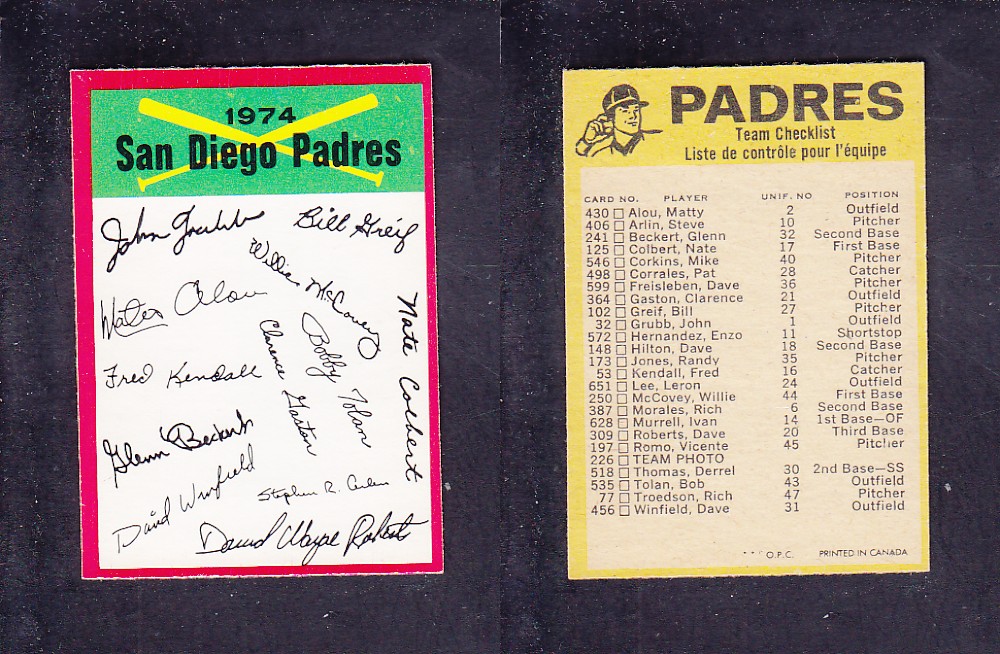 1974
San Diego Padres
John Grubb
Bill Greif
Willie McCovey
Mateo Alou
Nate Colbert
Clarence Gaston
Bobby Tolan
Fred Kendall
Glenn Beckert
David Winfield
Stephen R. Arlin
David Wayne Roberts
PADRES
Team Checklist
Liste de contrôle pour l'équipe
CARD NO. PLAYER UNIF. NO. POSITION
430 Alou, Matty 2 Outfield
406 Arlin, Steve 10 Pitcher
241 Beckert, Glenn 32 Second Base
125 Colbert, Nate 17 First Base
546 Corkins, Mike 40 Pitcher
498 Corrales, Pat 28 Catcher
599 Freisleben, Dave 36 Pitcher
364 Gaston, Clarence 21 Outfield
102 Greif, Bill 27 Pitcher
32 Grubb, John 1 Outfield
572 Hernandez, Enzo 11 Shortstop
148 Hilton, Dave 18 Second Base
173 Jones, Randy 35 Pitcher
53 Kendall, Fred 16 Catcher
651 Lee, Leron 24 Outfield
250 McCovey, Willie 44 First Base
387 Morales, Rich 6 Second Base
628 Murrell, Ivan 14 1st Base—OF
309 Roberts, Dave 20 Third Base
197 Romo, Vicente 45 Pitcher
226 TEAM PHOTO
518 Thomas, Derrel 30 2nd Base—SS
535 Tolan, Bob 43 Outfield
77 Troedson, Rich 47 Pitcher
456 Winfield, Dave 31 Outfield
O.P.C. PRINTED IN CANADA